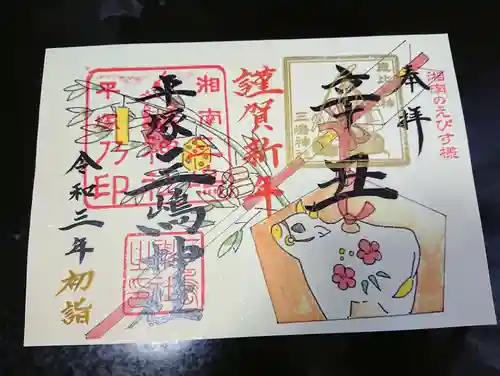 湘南のえびす様
奉拝
辛丑
謹賀新牛
湘南
平塚乃印
平塚三嶋神社
令和三年
初詣